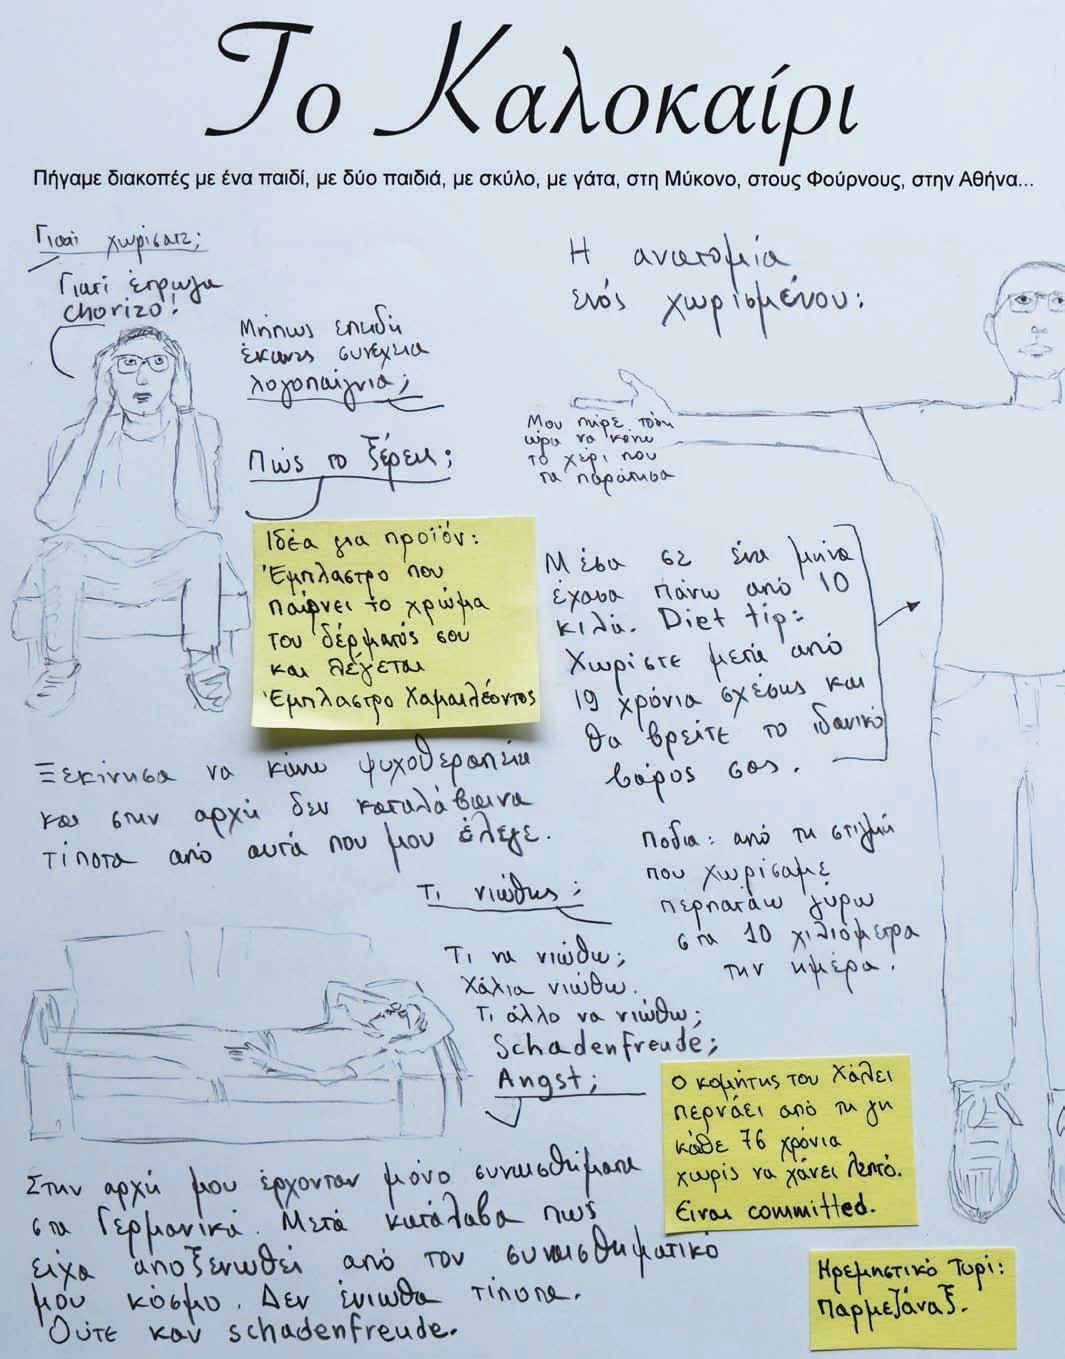 Το Καλοκαίρι
Πήγαμε διακοπές με ένα παιδί, με δύο παιδιά, με σκύλο, με γάτα, στη Μύκονο, στους Φούρνους, στην Αθήνα...
Γιατί χωρίσατε;
Γιατί έτρωγα
chorizo!
Μήπως επειδή
έκανες συνέχεια
λογοπαίγνια;
Πώς το ξέρεις;
Ιδέα για προϊόν:
Έμπλαστρο που
παίρνει το χρώμα
του δέρματός σου
και λέγεται
Έμπλαστρο Χαμαιλέοντος
Ξεκίνησα να κάνω ψυχοθεραπεία
και στην αρχή δεν καταλάβαινα
τίποτα από αυτά που μου έλεγε.
Τι νιώθεις;
Τι να νιώθω;
Χάλια νιώθω.
Τι άλλο να νιώθω;
Schadenfreude;
Angst;
Στην αρχή μου έρχονταν μόνο συναισθήματα
στα Γερμανικά. Μετά κατάλαβα πως
είχα αποξενωθεί από τον συναισθηματικό
μου κόσμο. Δεν ένιωθα τίποτα.
Ούτε καν schadenfreude.
Η ανατομία
ενός χωρισμένου:
Μου πήρε τόση
ώρα να κάνω
το χέρι που
τα παράτησα
Μέσα σε ένα μήνα
έχασα πάνω από 10
κιλά. Diet tip:
Χωρίστε μετά από
19 χρόνια σχέσης και
θα βρείτε το ιδανικό
βάρος σας.
Πόδια: από τη στιγμή
που χωρίσαμε
περπατάω γύρω
στα 10 χιλιόμετρα
την ημέρα.
Ο κομήτης του Χάλεϊ
περνάει από τη γη
κάθε 76 χρόνια
χωρίς να χάνει λεπτό.
Είναι committed.
Ηρεμηστικό Τυρί:
Παρμεζάναξ.